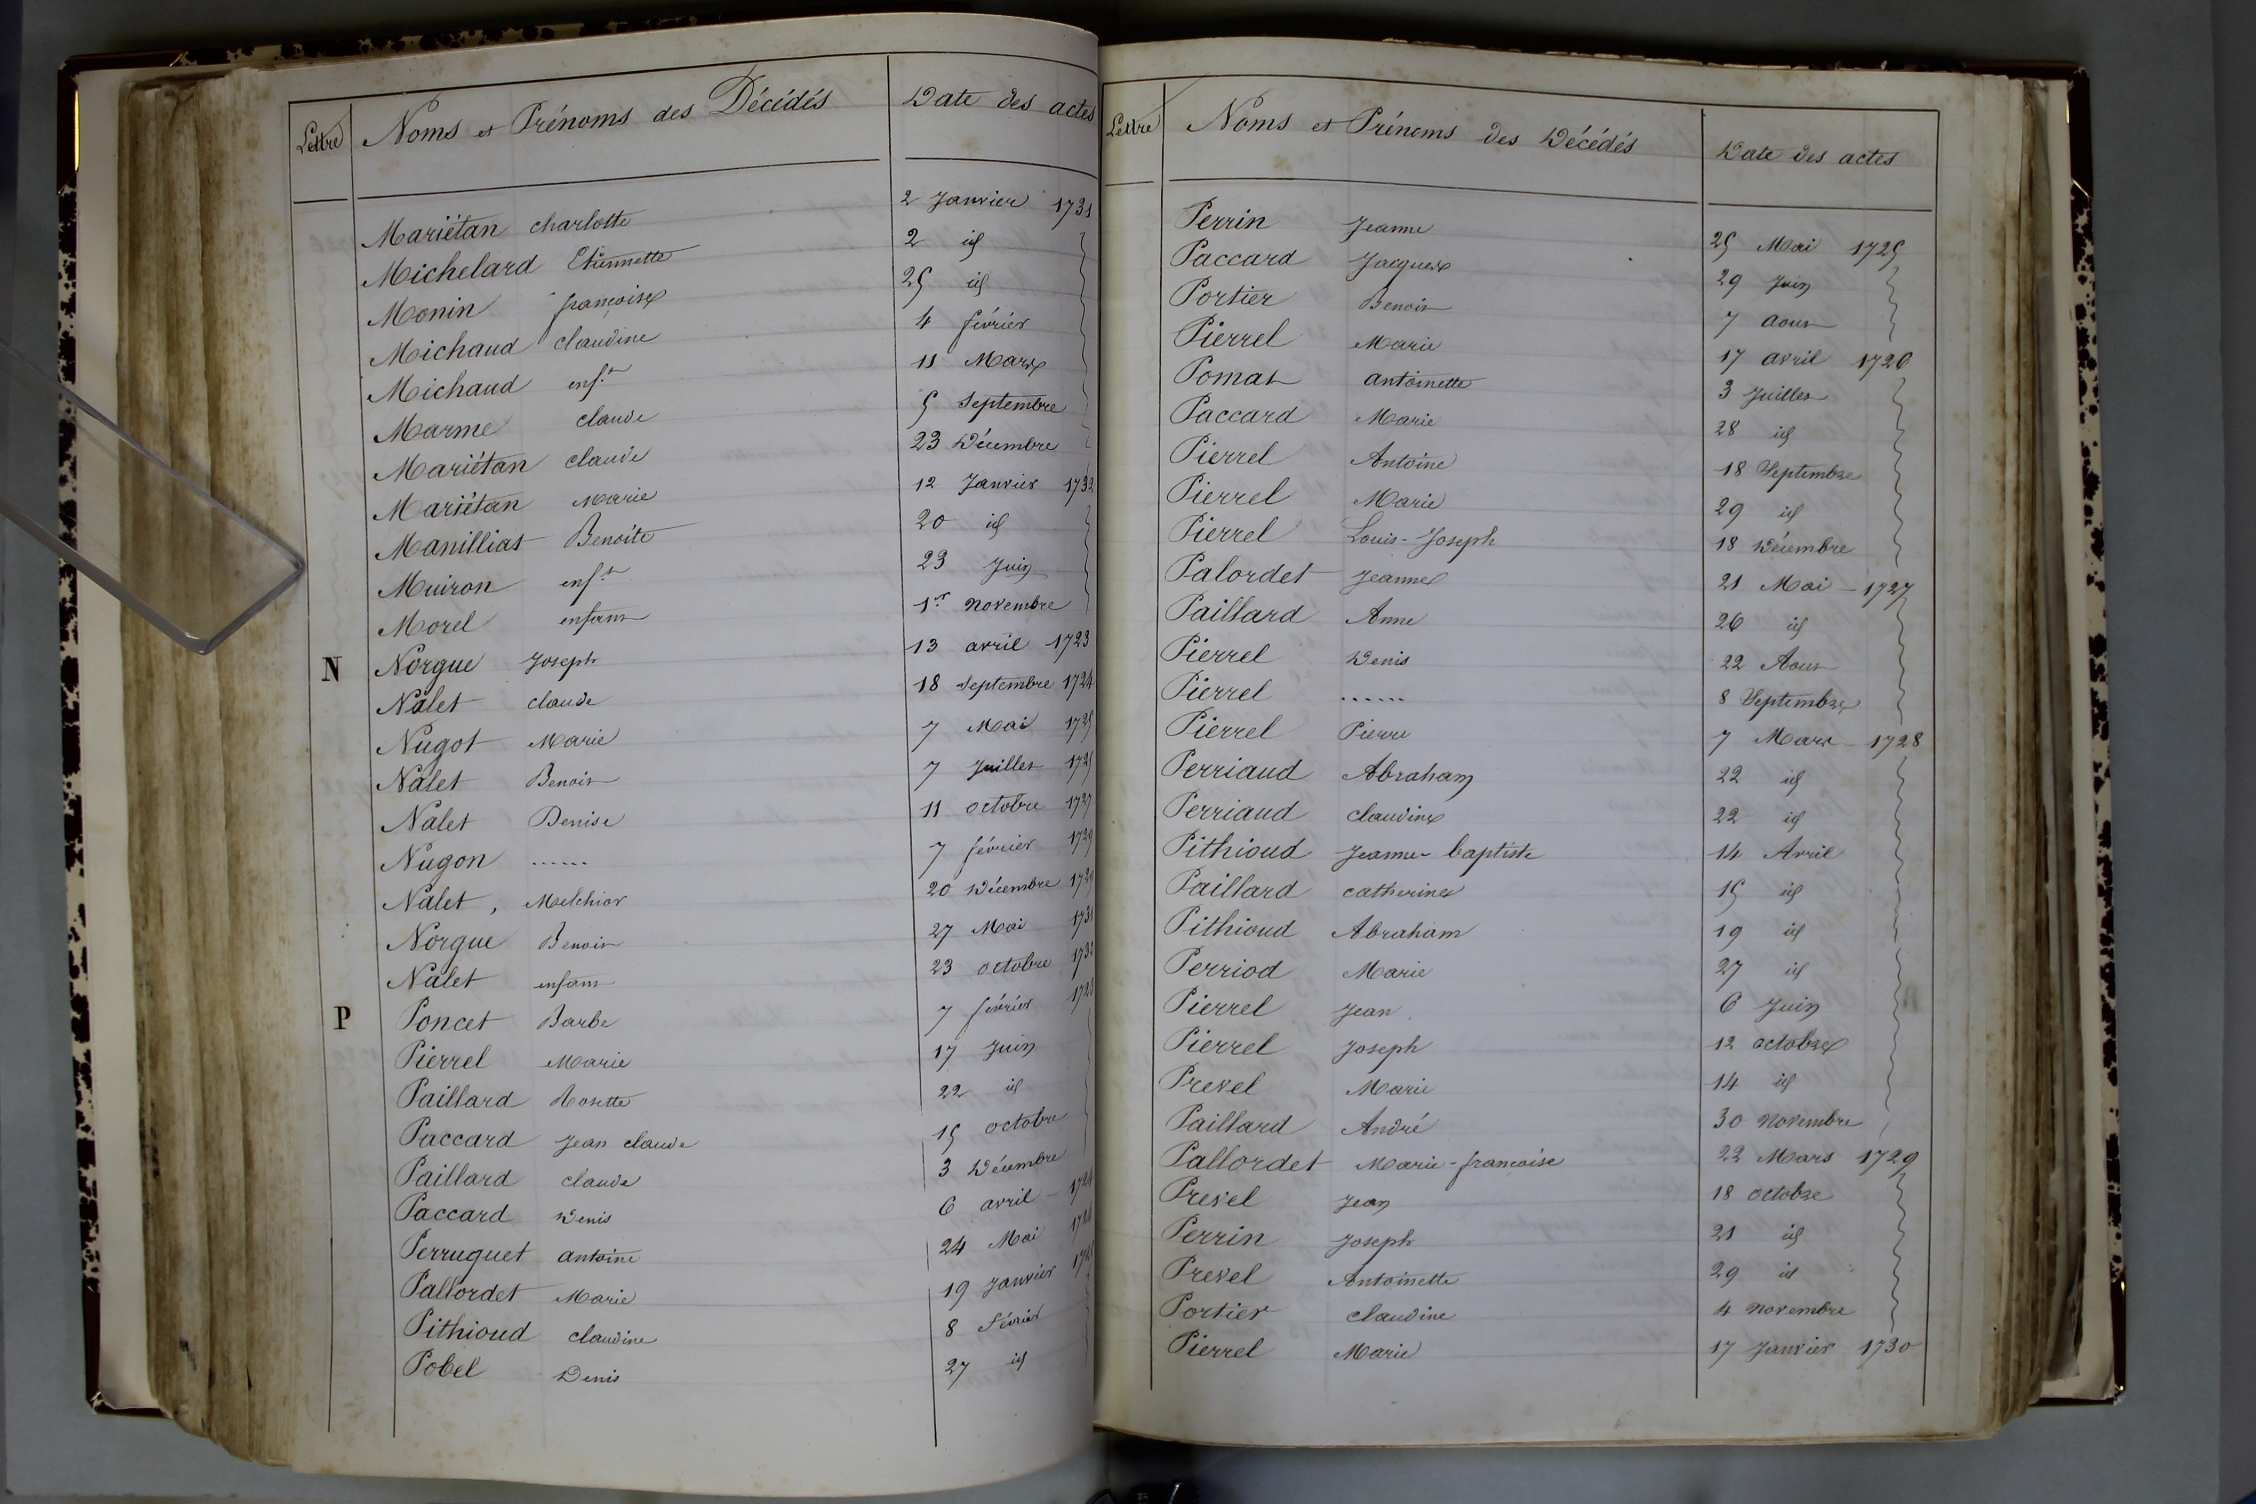 Lettre Noms et Prénoms des Décédés Date des actes
Mariétan charlotte 2 Janvier 1731
Michelard Etiennette 2 id
Monin françoise 25 id
Michaud claudine 4 février
Michaud enf.t 11 Mars
Marme claude 5 Septembre
Mariétan claude 23 Décembre
Mariétan Marie 12 Janvier 1732
Manillias Benoite 20 id
Muiron enf.t 23 Juin
Morel enfant 1er Novembre
N Norgue Joseph 13 avril 1723
Nalet claude 18 Septembre 1724
Nugot Marie 7 Mai 1725
Nalet Benoit 7 Juillet 1725
Nalet Denise 11 octobre 1727
Nugon ...... 7 février 1729
Nalet, Melchior 20 Décembre 1729
Norgue Benoit 27 Mai 1731
Nalet enfant 23 octobre 1732
P Poncet Barbe 7 février 1723
Pierrel Marie 17 Juin
Paillard Rosette 22 id
Paccard Jean claude 15 octobre
Paillard claude 3 Décembre
Paccard Denis 6 avril 1724
Perruquet antoine 24 Mai
Pallordet Marie 19 Janvier
Pithioud claudine 8 Février
Pobel Denis 27 id
Lettre Noms et Prénoms des Décédés Date des actes
Perrin Jeanne 25 Mai 1725
Paccard Jacques 29 Juin
Portier Benoit 7 aout
Pierrel Marie 17 avril 1726
Pomat antoinette 3 Juillet
Paccard Marie 28 id
Pierrel Antoine 18 Septembre
Pierrel Marie 29 id
Pierrel Louis-Joseph 18 Décembre
Palordet Jeanne 21 Mai - 1727
Paillard Anne 26 id
Pierrel Denis 22 Aout
Pierrel ...... 8 Septembre
Pierrel Pierre 7 Mars 1728
Perriaud Abraham 22 id
Perriaud claudine 22 id
Pithioud Jeanne-baptiste 14 Avril
Paillard catherine 15 id
Pithioud Abraham 19 id
Perriod Marie 27 id
Pierrel Jean 6 Juin
Pierrel Joseph 12 octobre
Prevel Marie 14 id
Paillard André 30 Novembre
Pallordet Marie-francoise 22 Mars 1729
Prevel Jean 18 octobre
Perrin Joseph 21 id
Prevel Antoinette 29 id
Portier claudine 4 Novembre
Pierrel Marie 17 Janvier 1730